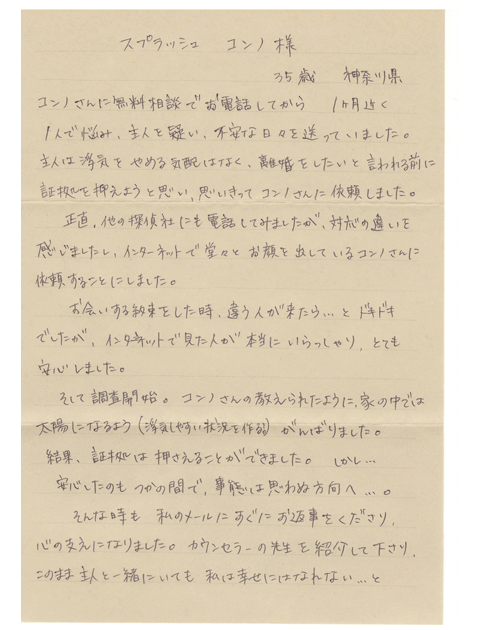 スプラッシュ コンノ様
35歳 神奈川県
コンノさんに無料相談でお電話してから 1ヶ月近く
1人で悩み、主人を疑い、不安な日々を送っていました。
主人は浮気をやめる気配はなく、離婚をしたいと言われる前に
証拠を押えようと思い、思いきってコンノさんに依頼しました。
正直、他の探偵社にも電話してみましたが、対応の違いを
感じましたし、インターネットで堂々とお顔を出しているコンノさんに
依頼することにしました。
お会いする約束をした時、違う人が来たら…とドキドキ
でしたが、インタネットで見た人が本当にいらっしゃり、とても
安心しました。
そして調査開始。コンノさんの教えられたように、家の中では
太陽になるよう(浮気しやすい状況を作る)がんばりました。
結果、証拠は押さえることができました。しかし…
安心したのもつかの間で、事態は思わぬ方向へ…。
そんな時も 私のメールにすぐにお返事をくださり、
心の支えになりました。カウンセラーの先生を紹介して下さり、
このまま主人と一緒にいても 私は幸せにはなれない…と